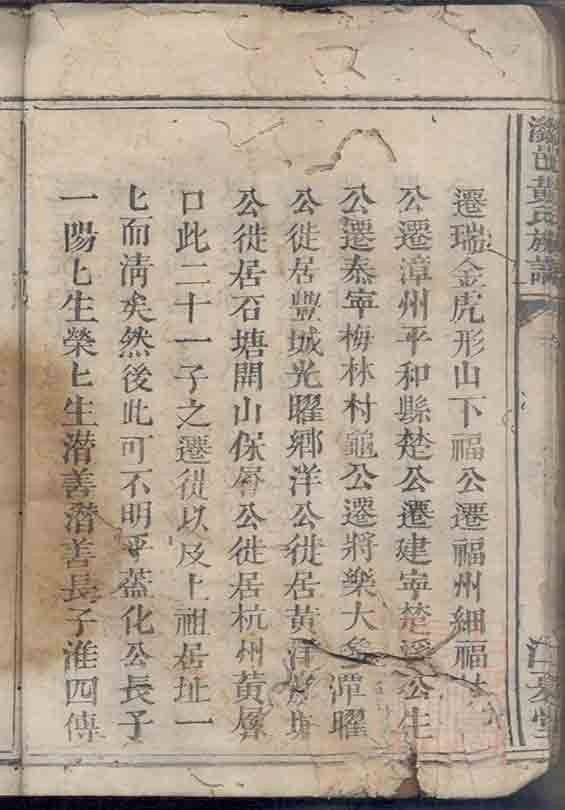 黃氏族譜
遷瑞金虎形山下福公遷福州細福
公遷漳州平和縣楚公遷建寧楚溪公生
公遷泰寧梅林村龜公遷將樂大 潭曜
公徙居豐城光曜鄉洋公徙居黃 塘
公徙居石塘開山保層公徙居杭州黃
口此二十一子之遷徙以及上祖居址一
匕而淸矣然後此可不明乎蓋化公長子
一陽匕生榮匕生潛善潛善長子淮四傳